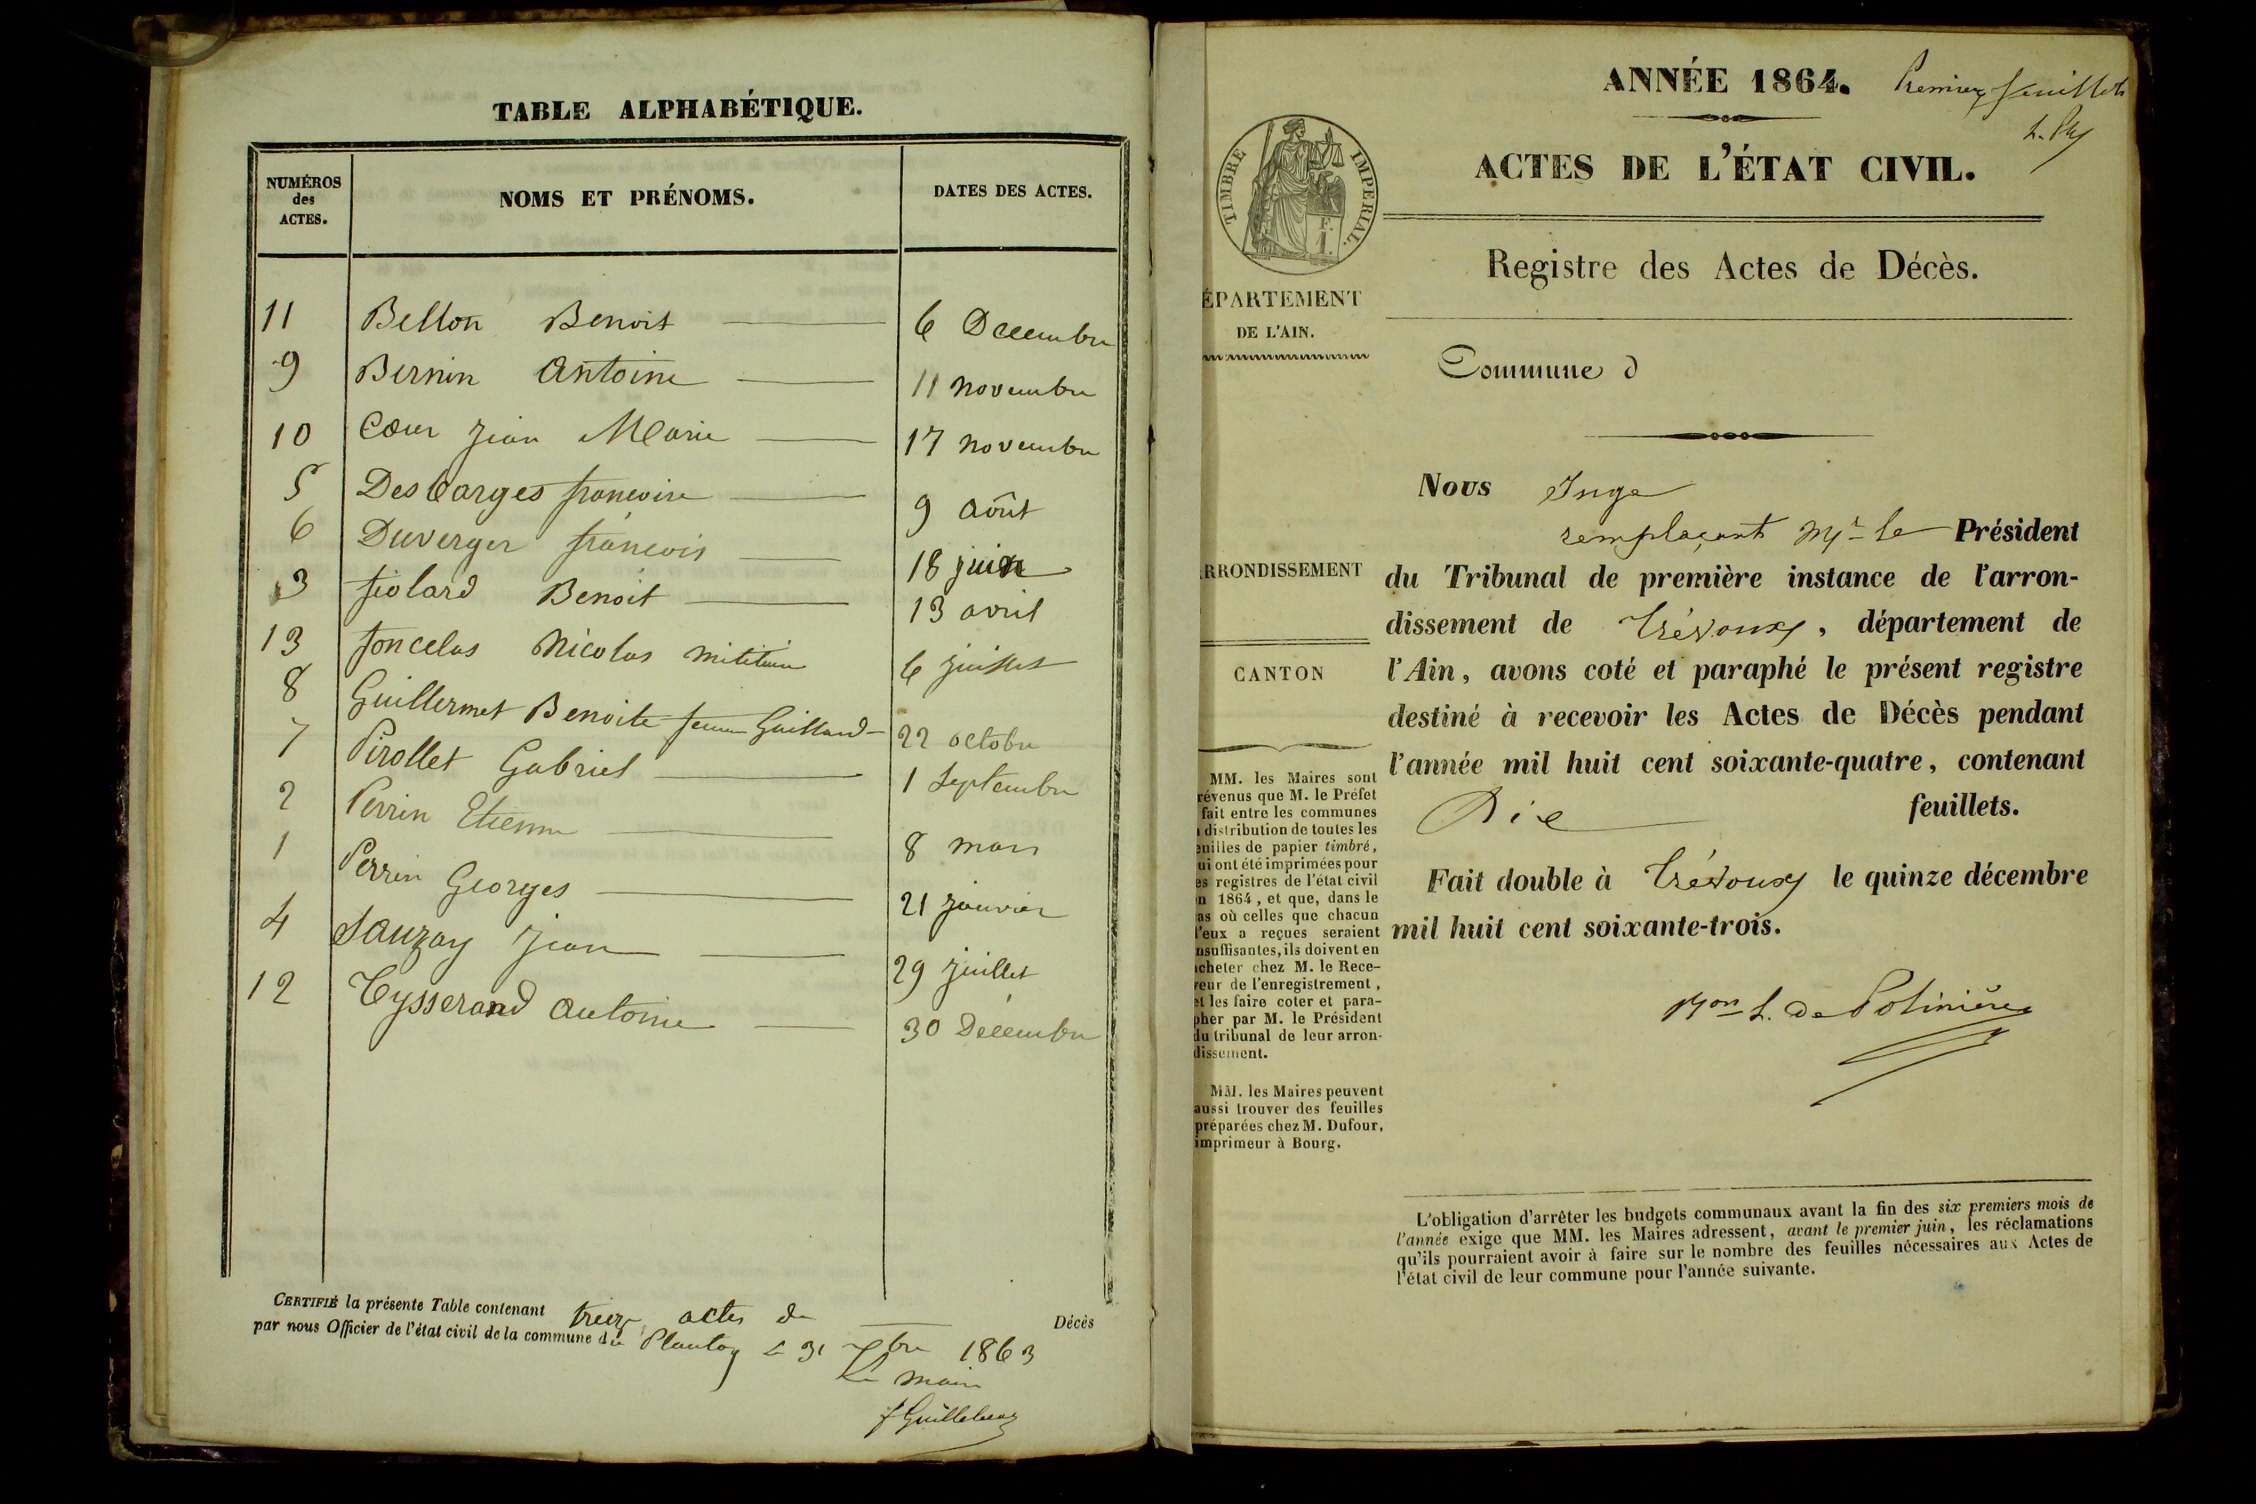 TABLE ALPHABÉTIQUE.
NUMÉROS des ACTES.
NOMS ET PRÉNOMS.
DATES DES ACTES.
11 Bellon Benoit 6 Decembre
9 Bernin Antoine 11 novembre
10 Cœur Jean Marie 17 novembre
5 Descarges francoise 9 Août
6 Duverger francois 18 juin
3 fiolard Benoit 13 avril
13 foncelas Nicolas militaire 6 juillet
8 Guillermet Benoite femme Guilland 22 octobre
7 Pirollet Gabriel 1 Septembre
2 Perrin Etienne 8 mars
1 Perrin Georges 21 janvier
4 Sauzay Jean 29 Juillet
12 Teysserand Antoine 30 Décembre
CERTIFIÉ la présente Table contenant treize actes de Décès
par nous Officier de l'état civil de la commune du Plantay le 31 Xbre 1863
Le maire
ANNÉE 1864. Premier feuillet
ACTES DE L'ÉTAT CIVIL.
TIMBRE IMPERIAL.
F.
1.
Registre des Actes de Décès.
ÉPARTEMENT
DE L'AIN.
Commune d
RRONDISSEMENT
CANTON
MM. les Maires sont
révenus que M. le Préfet
fait entre les communes
distribution de toutes les
euilles de papier timbré,
ui ont été imprimées pour
es registres de l'état civil
n 1864, et que, dans le
as où celles que chacun
d'eux a reçues seraient
nsuffisantes, ils doivent en
acheter chez M. le Rece-
veur de l'enregistrement,
et les faire coter et para-
pher par M. le Président
du tribunal de leur arron-
dissement.
MM. les Maires peuvent
aussi trouver des feuilles
préparées chez M. Dufour,
imprimeur à Bourg.
Nous Juge
remplaçant Mr le Président
du Tribunal de première instance de l'arron-
dissement de Trévoux, département de
l'Ain, avons coté et paraphé le présent registre
destiné à recevoir les Actes de Décès pendant
l'année mil huit cent soixante-quatre, contenant
Dix feuillets.
Fait double à Trévoux le quinze décembre
mil huit cent soixante-trois.
L. de Polinière
L'obligation d'arrêter les budgets communaux avant la fin des six premiers mois de
l'année exige que MM. les Maires adressent, avant le premier juin, les réclamations
qu'ils pourraient avoir à faire sur le nombre des feuilles nécessaires aux Actes de
l'état civil de leur commune pour l'année suivante.